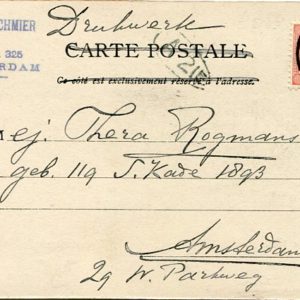 Drukwerk
CHMIER
325
RDAM
CARTE POSTALE
Ce côté est exclusivement réservé à l'adresse.
Mej. Thera Rogmans
geb. 119 S. Kade 1893
Amsterdam
29 W. Parkweg